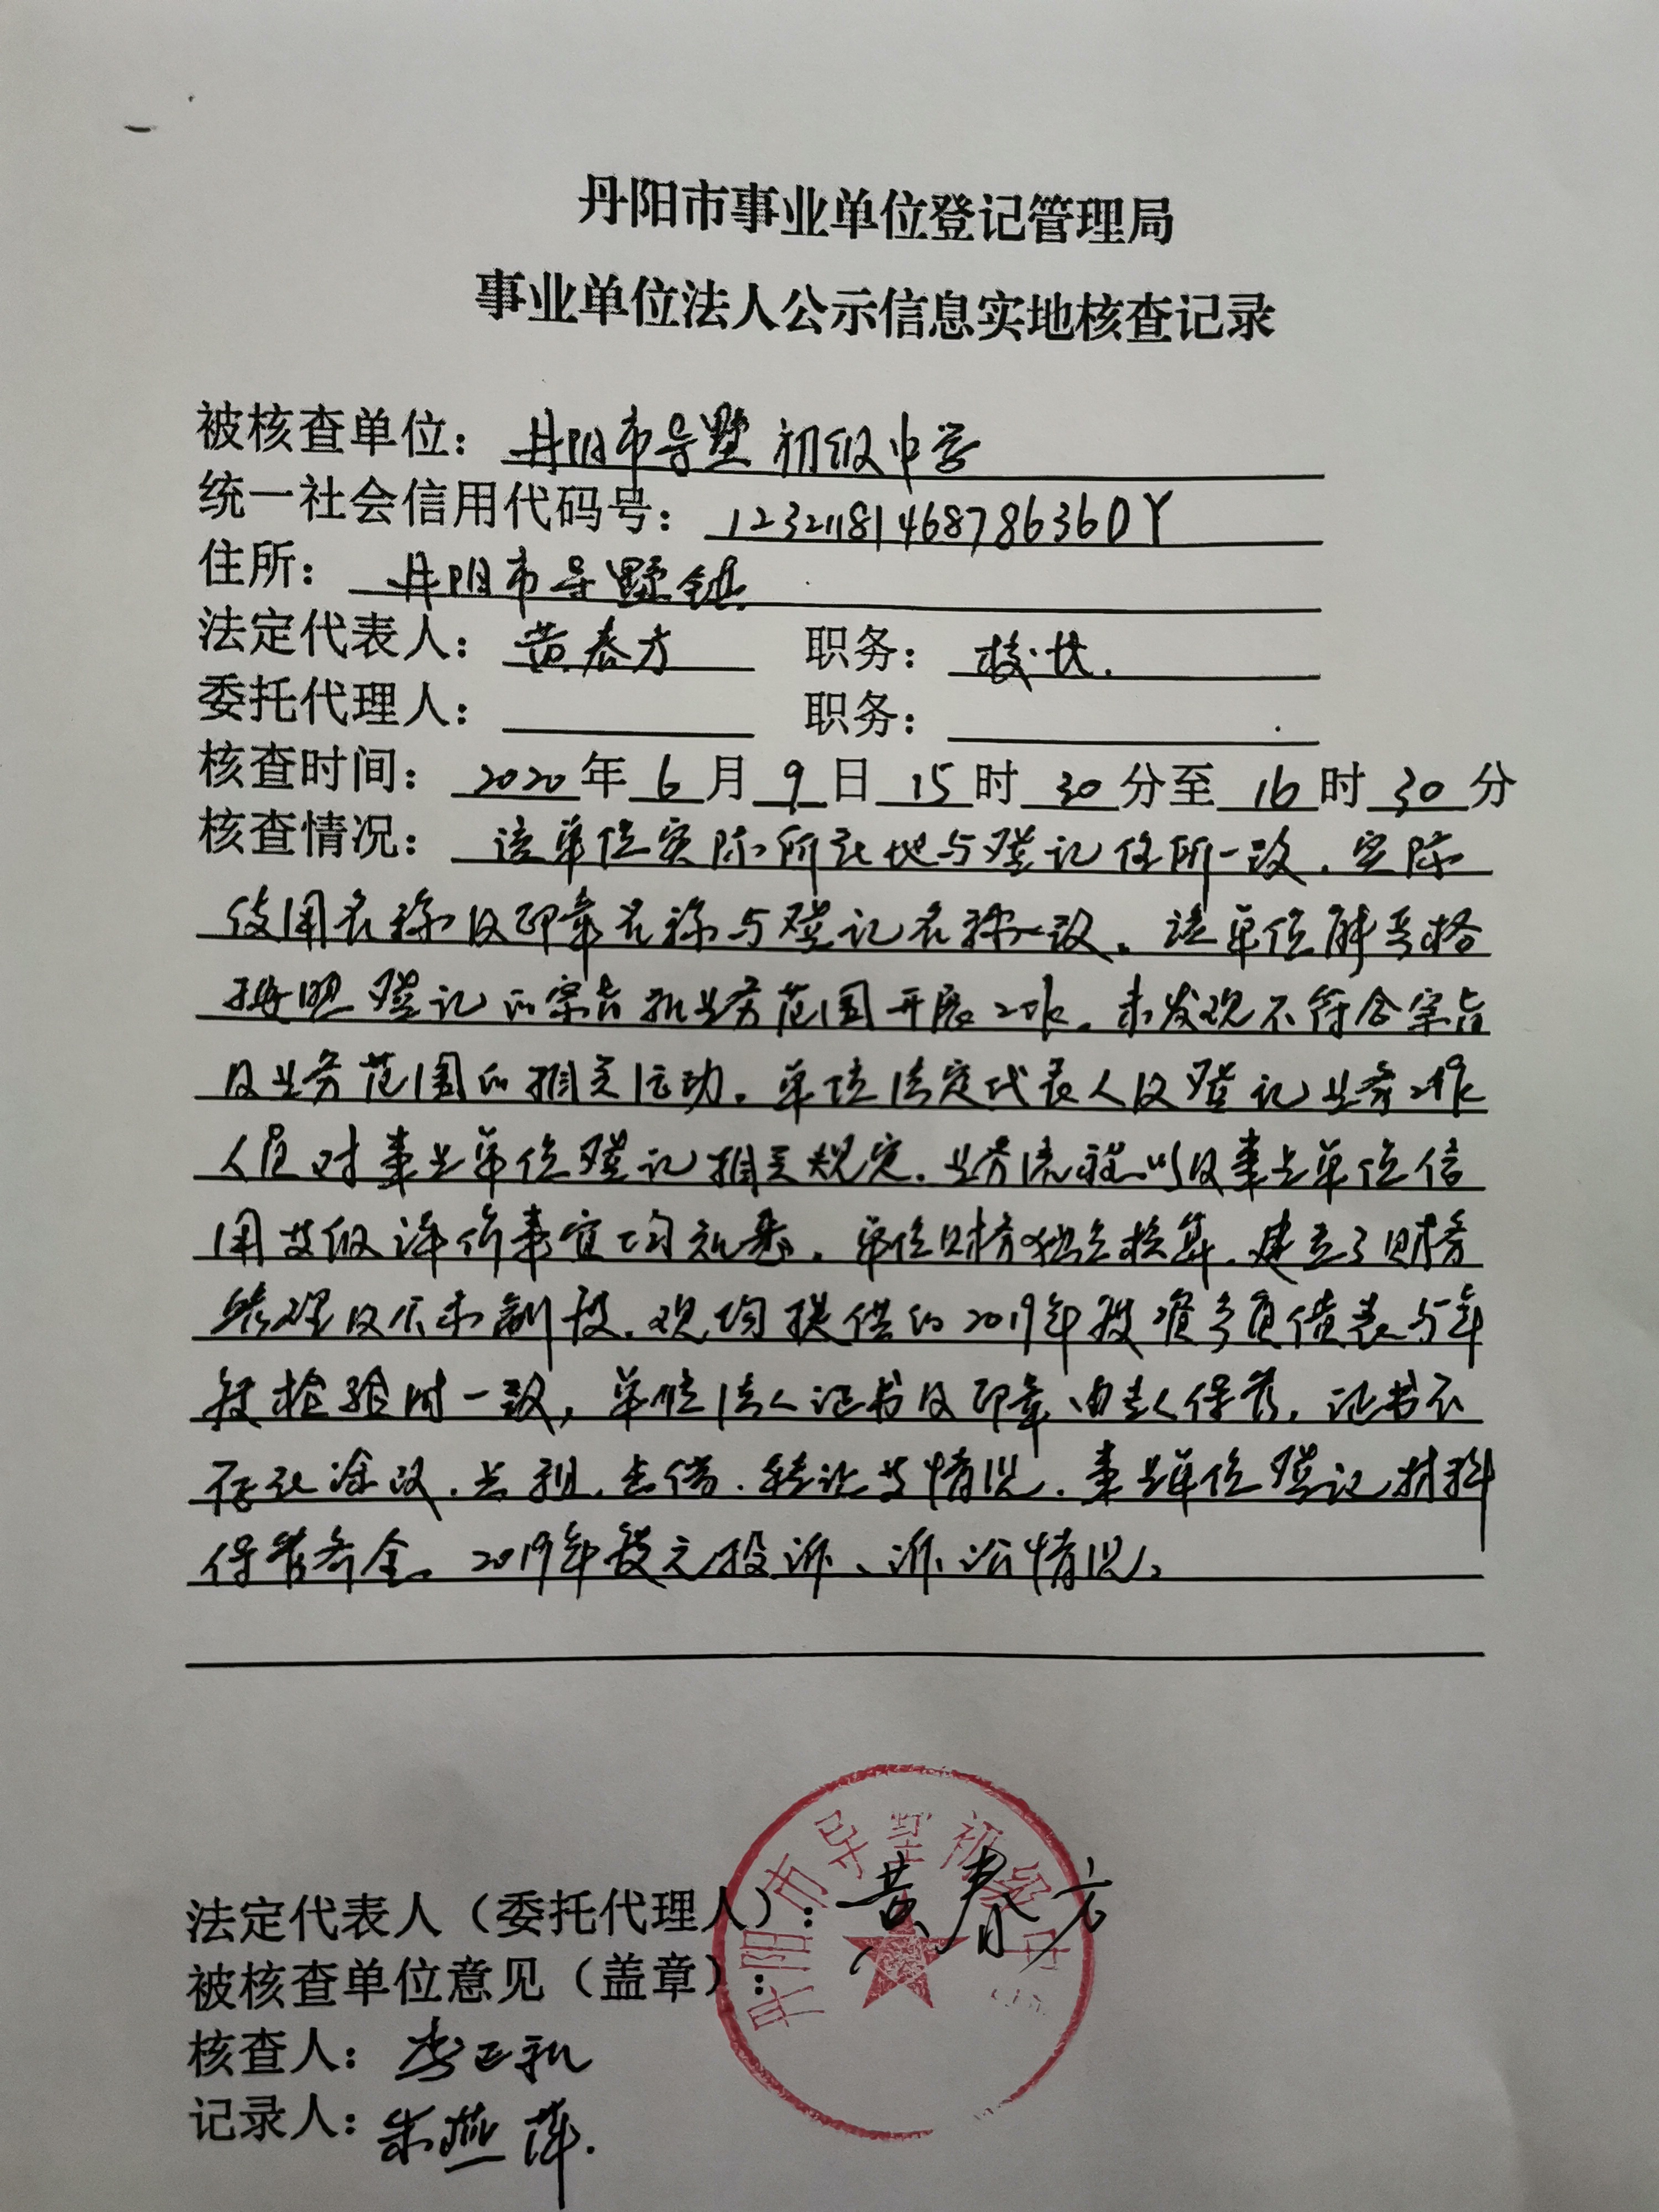 丹阳市事业单位登记管理局
事业单位法人公示信息实地核查记录
被核查单位：丹阳市导墅初级中学
统一社会信用代码号：12321181468786360Y
住所：丹阳市导墅镇
法定代表人：黄春方 职务：校长.
委托代理人： 职务：
核查时间：2020年6月9日15时30分至16时30分
核查情况：该单位实际所在地与登记住所一致.实际
使用名称及印章名称与登记名称一致。该单位能严格
按照登记的宗旨和业务范围开展工作。未发现不符合宗旨
及业务范围的相关活动。单位法定代表人及登记业务工作
人员对事业单位登记相关规定.业务流程以及事业单位信
用等级评价事宜均知悉。单位财务独立核算.建立了财务
管理及公示制度.现场提供的2019年度资产负债表与年
度检验时一致，单位法人证书及印章由专人保管，证书不
存在涂改.出租.出借.转让等情况.事业单位登记材料
保管齐全。2019年度无投诉、诉讼情况。
丹阳市导墅初级中
法定代表人（委托代理人）：黄春方
被核查单位意见（盖章）：
核查人：李正和
记录人：朱燕萍.